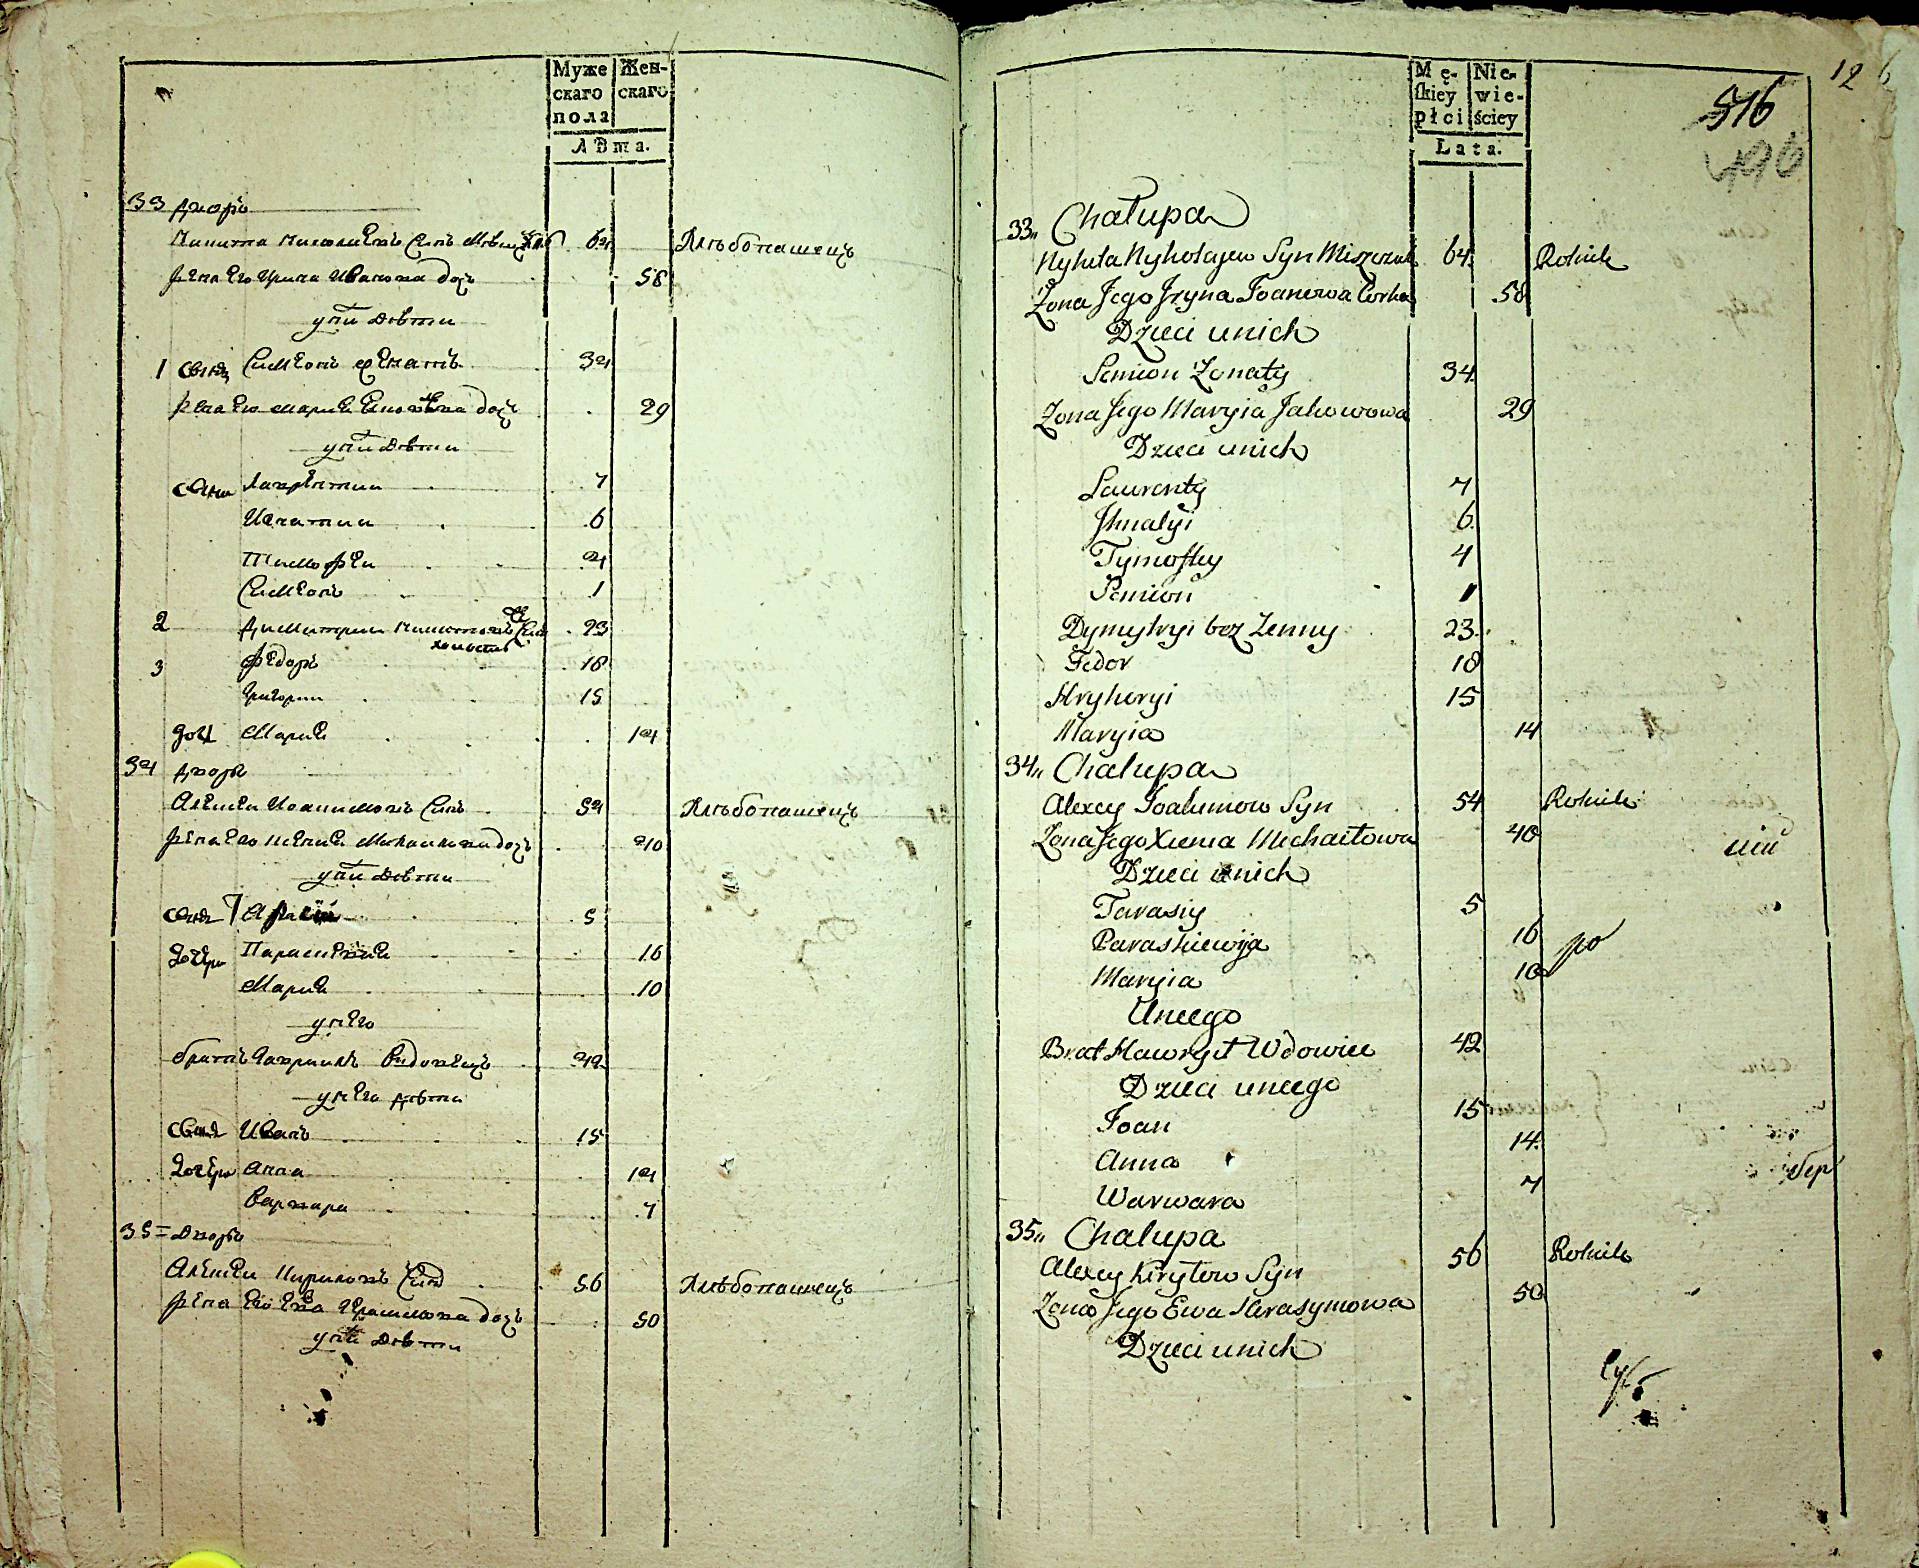 Муже Жен-
скаго скаго
пола
Лѣта.
33 дворъ
Никита Николаевъ Сынъ 64 Хлѣбопашецъ
жена Его Ирина Иванова дочь 58
у них Дѣти
1 сынъ Симеонъ женатъ 34
жена Его Мария дочь 29
у них Дѣти
сыны Лаврентии 7
Игнатии 6
Тимофеи 4
Симеонъ 1
2 Димитрии Никитовъ Сынъ 23
холостъ
3 Федоръ 18
Григории 15
дочь Мария 14
34 дворъ
Алексеи Иоакимовъ Сынъ 54 Хлѣбопашецъ
жена Его Ксения Михаилова дочь 40
у них Дѣти
сынъ Тарасии 5
дочери Параскевия 16
Мария 10
у него
братъ Гавриилъ Вдовецъ 42
у него дѣти
сынъ Иванъ 15
дочери Анна 14
Варвара 7
35 Дворъ
Алексеи Кириловъ Сынъ 56 Хлѣбопашецъ
жена Его Ева Герасимова дочь 50
у них Дѣти
12
516
Mę- Nie-
ſkiey wie-
płci ściey
Lata.
33„ Chałupa
Nykita Nykołajew Syn Miszczuk 64 Rolnik
Zona Jego Jryna Joanowa Corka 58
Dzieci unich
Semion Zonaty 34
Zona Jego Maryia Jakowowa 29
Dzieci unich
Laurenty 7
Jhnatyi 6
Tymoftey 4
Semion 1
Dymytryi bez Zenny 23
Fedor 18
Hryhoryi 15
Maryia 14
34„ Chałupa
Alexey Joakimow Syn 54 Rolnik
Zona Jego Xienia Michaiłowa 40
Dzieci unich
Tarasiy 5
Paraskiewija 16
Maryia 10
Uneego
Brat Hawryił Wdowiec 42
Dzieci uneego
Joan 15
Anna 14
Warwara 7
35„ Chałupa
Alexey Kiryłow Syn 56 Rolnik
Zona Jego Ewa Herasymowa 50
Dzieci unich